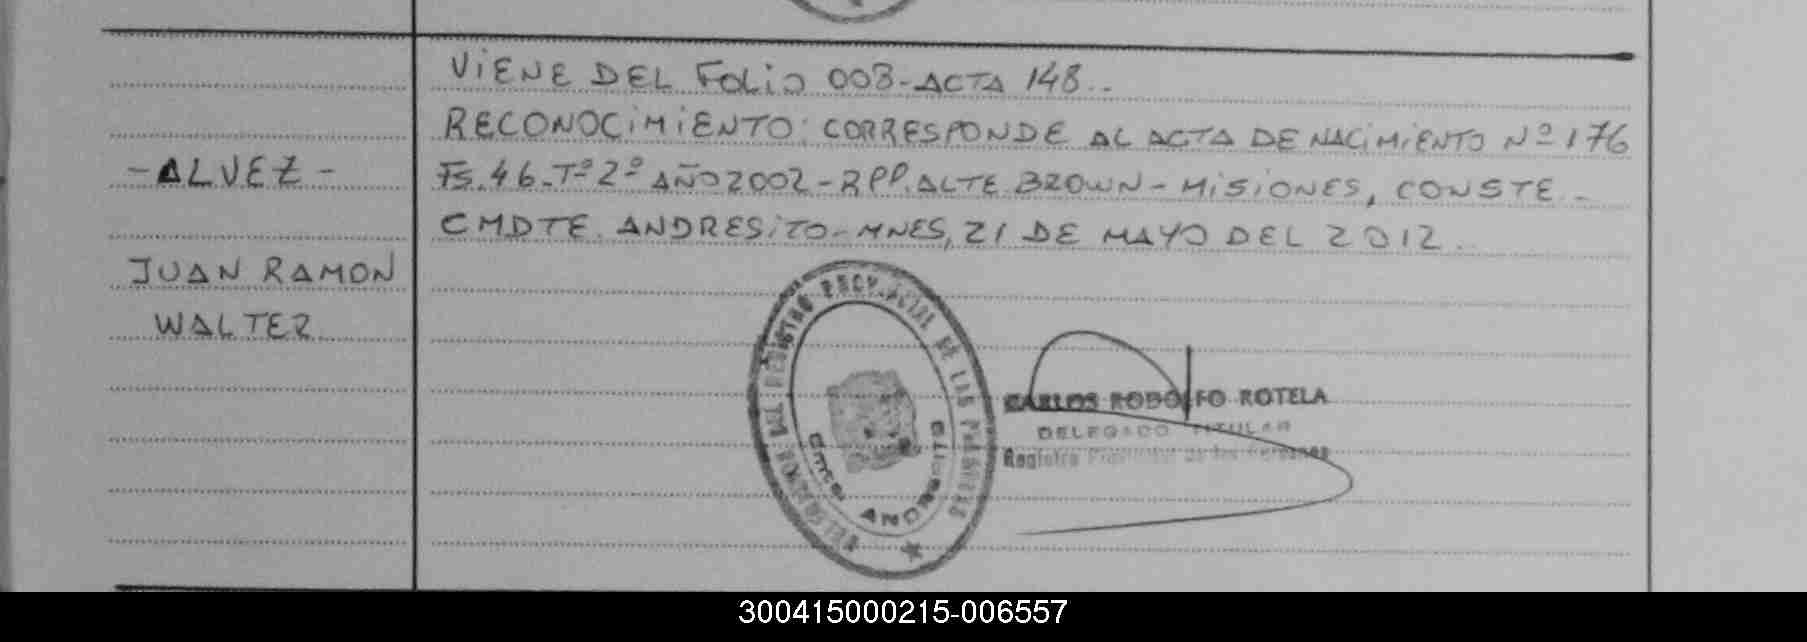 VIENE DEL FOLIO 003-ACTA 148..
RECONOCIMIENTO: CORRESPONDE AL ACTA DE NACIMIENTO Nº 176
Fs. 46. Tº 2º AÑO 2002-RPP. ALTE BROWN-MISIONES, CONSTE-
CMDTE. ANDRESITO-MNES, 21 DE MAYO DEL 2012.
-ALVEZ-
JUAN RAMON
WALTER
REGISTRO PROVINCIAL DE LAS PERSONAS
Cmte. ANDRESITO
CARLOS RODOLFO ROTELA
DELEGADO TITULAR
Registro Provincial de las Personas
300415000215-006557